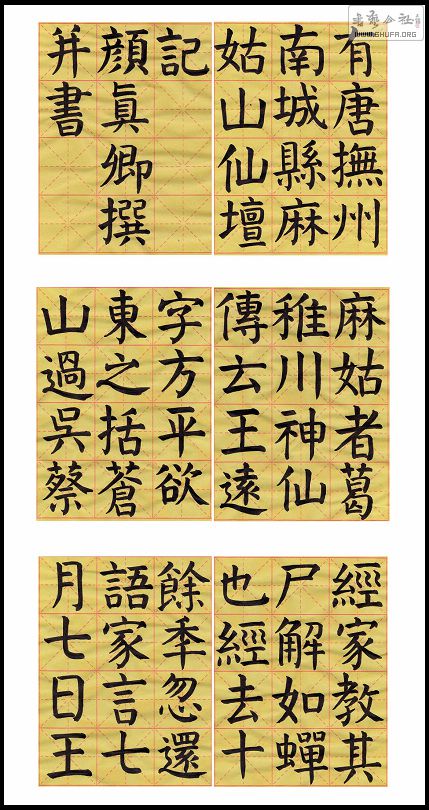 书艺公社
WWW.SHUFA.ORG
有唐撫州
南城縣麻
姑山仙壇
記
顏眞卿撰
并書
麻姑者葛
稚川神仙
傳云王遠
字方平欲
東之括蒼
山過吳蔡
經家教其
尸解如蟬
也經去十
餘秊忽還
語家言七
月七日王